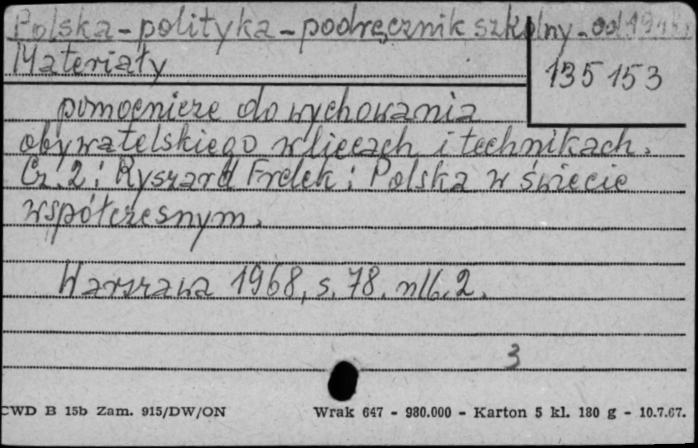 Polska - polityka - podręcznik szkolny - od
Materiały
135 153
pomocnicze do wychowania
obywatelskiego w liceach i technikach.
Cz. 2: Ryszard Frelek: Polska w świecie
współczesnym.
Warszawa 1968, s. 78. nlb. 2.
3
CWD B 15b Zam. 915/DW/ON
Wrak 647 - 980.000 - Karton 5 kl. 180 g - 10.7.67.